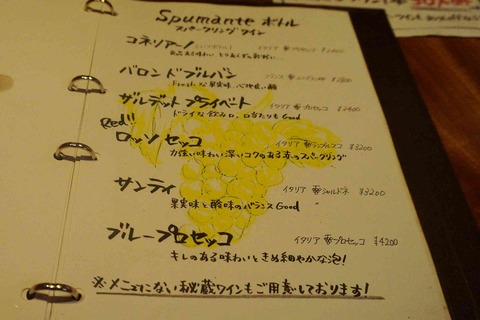 Spumante ボトル
スパークリングワイン
コネリアーノ イタリア
バロンドブルバン
Freshな果実味、心地良い酸
ザルデットプライベート イタリア プロセッコ ¥2400
ドライな飲み口、口当たりもGood
Red!!
ロッソセッコ イタリア ランブルスコ ¥3200
力強い味わい深いコクのある赤のスパークリング
サンティ イタリア シャルドネ ¥3200
果実味と酸味のバランスGood
ブループロセッコ イタリア プロセッコ ¥4200
キレのある味わいときめ細やかな泡!
※メニューにない秘蔵ワインもご用意しております!